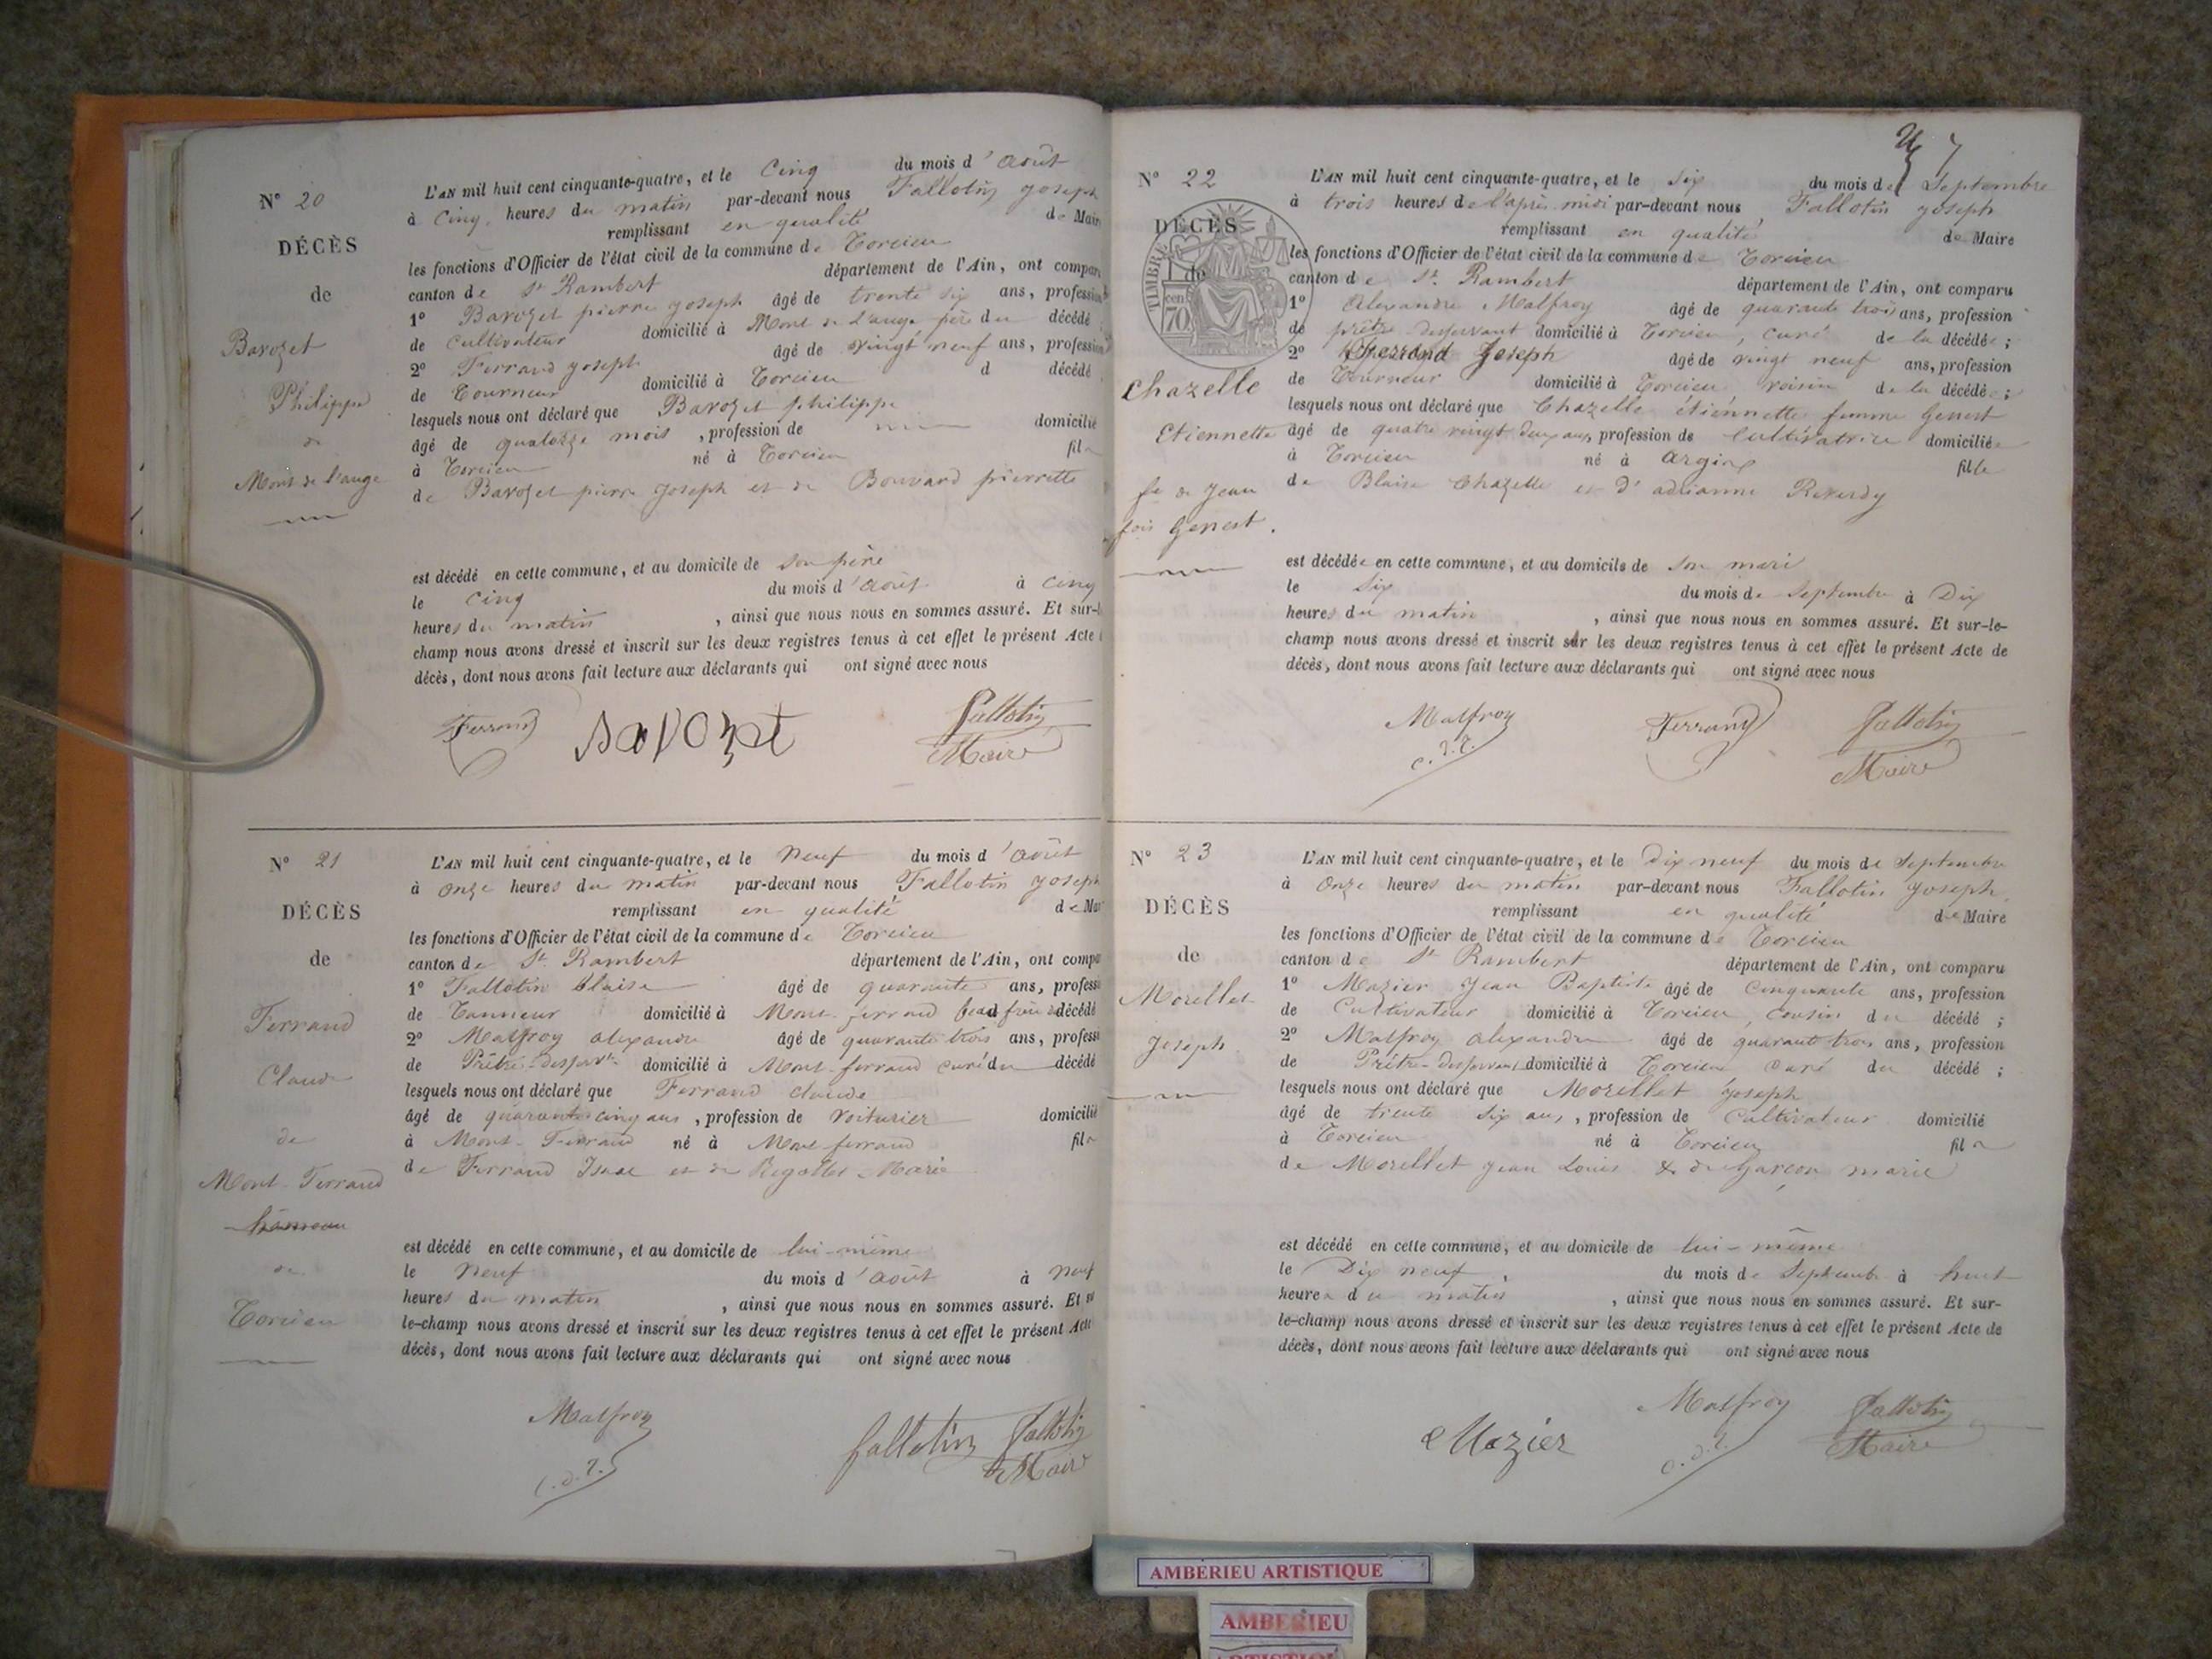 N° 20
DÉCÈS
de
Barozet
Philippe
de
Mont de l'ange
L'AN mil huit cent cinquante-quatre, et le Cinq du mois d'août
à Cinq heures du matin par-devant nous Fallotin Joseph
remplissant en qualité de Maire
les fonctions d'Officier de l'état civil de la commune de Torcieu
canton de St Rambert département de l'Ain, ont compar
1° Barozet pierre joseph âgé de trente six ans, profession
de Cultivateur domicilié à Mont de l'ange père du décédé
2° Ferrand joseph âgé de vingt neuf ans, profession
de Tourneur domicilié à Torcieu d décédé
lesquels nous ont déclaré que Barozet philippe
âgé de quatorze mois, profession de domicilié
à Torcieu né à Torcieu fils
de Barozet pierre Joseph et de Bouvard pierrette
est décédé en cette commune, et au domicile de son père
le cinq du mois d'août à cinq
heures du matin, ainsi que nous nous en sommes assuré. Et sur-le
champ nous avons dressé et inscrit sur les deux registres tenus à cet effet le présent Acte
décès, dont nous avons fait lecture aux déclarants qui ont signé avec nous
Ferrand Barozet Fallotin
Maire
N° 21
DÉCÈS
de
Ferrand
Claude
de
Mont-Ferrand
hameau
de
Torcieu
L'AN mil huit cent cinquante-quatre, et le neuf du mois d'août
à onze heures du matin par-devant nous Fallotin Joseph
remplissant en qualité de Mai
les fonctions d'Officier de l'état civil de la commune de Torcieu
canton de St Rambert département de l'Ain, ont compa
1° Fallotin blaise âgé de quarante ans, profess
de Tanneur domicilié à Mont-ferrand beau frère du décédé
2° Malfroy alexandre âgé de quarante trois ans, profess
de Prêtre-desservt domicilié à Mont-ferrand curé du décédé
lesquels nous ont déclaré que Ferrand claude
âgé de quarante cinq ans, profession de voiturier domicilié
à Mont-Ferrand né à Mont ferrand fils
de Ferrand Isaac et de Marie
est décédé en cette commune, et au domicile de lui-même
le neuf du mois d'août à neuf
heures du matin, ainsi que nous nous en sommes assuré. Et su
le-champ nous avons dressé et inscrit sur les deux registres tenus à cet effet le présent Acte
décès, dont nous avons fait lecture aux déclarants qui ont signé avec nous
Malfroy fallotin Fallotin
c.d.t. Maire
7
N° 22
DÉCÈS
TIMBRE
1 de
cen
70
de
Chazelle
Etiennette
fe de Jean
fois Genest.
L'AN mil huit cent cinquante-quatre, et le six du mois de Septembre
à trois heures de l'après-midi par-devant nous Fallotin Joseph
remplissant en qualité de Maire
les fonctions d'Officier de l'état civil de la commune de Torcieu
canton de St. Rambert département de l'Ain, ont comparu
1° Alexandre Malfroy âgé de quarante trois ans, profession
de prêtre desservant domicilié à Torcieu, curé de la décédée;
2° Ferrand Joseph âgé de vingt neuf ans, profession
de Tourneur domicilié à Torcieu voisin de la décédée;
lesquels nous ont déclaré que Chazelle étiennette femme Genest
âgé de quatre vingt deux ans, profession de Cultivatrice domiciliée
à Torcieu né à Argis fille
de Blaise Chazelle et d'adrianne Reverdy
est décédée en cette commune, et au domicile de son mari
le six du mois de Septembre à Dix
heures du matin, ainsi que nous nous en sommes assuré. Et sur-le-
champ nous avons dressé et inscrit sur les deux registres tenus à cet effet le présent Acte de
décès, dont nous avons fait lecture aux déclarants qui ont signé avec nous
Malfroy Ferrand Fallotin
c.d.t. Maire
N° 23
DÉCÈS
de
Morellet
Joseph
L'AN mil huit cent cinquante-quatre, et le Dix neuf du mois de Septembre
à Onze heures du matin par-devant nous Fallotin Joseph
remplissant en qualité de Maire
les fonctions d'Officier de l'état civil de la commune de Torcieu
canton de St Rambert département de l'Ain, ont comparu
1° Mazier Jean Baptiste âgé de Cinquante ans, profession
de Cultivateur domicilié à Torcieu, cousin du décédé;
2° Malfroy alexandre âgé de quarante trois ans, profession
de Prêtre-desservant domicilié à Torcieu curé du décédé;
lesquels nous ont déclaré que Morellet Joseph
âgé de trente six ans, profession de Cultivateur domicilié
à Torcieu né à Torcieu fils
de Morellet Jean Louis & de Garçon marie
est décédé en cette commune, et au domicile de lui-même
le Dix neuf du mois de Septembre à huit
heures du matin, ainsi que nous nous en sommes assuré. Et sur-
le-champ nous avons dressé et inscrit sur les deux registres tenus à cet effet le présent Acte de
décès, dont nous avons fait lecture aux déclarants qui ont signé avec nous
Mazier Malfroy Fallotin
c.d.t. Maire
AMBÉRIEU ARTISTIQUE
AMBERIEU
ARTISTIQU